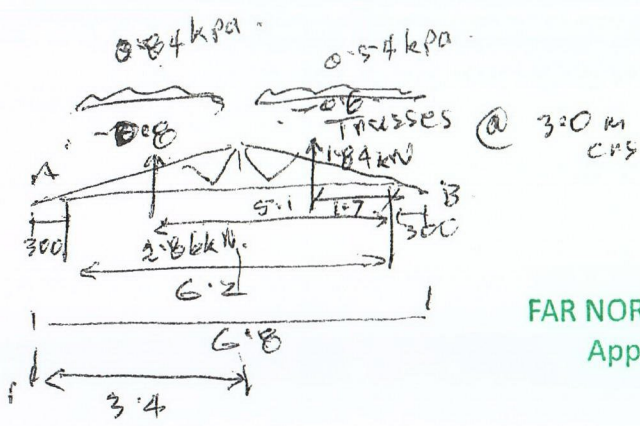 0.84 kpa. 0.54 kpa.
-0.8 -0.6
Trusses @ 3.0 m
crs
A 1.84kN B
5.1 1.7
300 2.86kN. 300
6.2
6.8
3.4
FAR NOR
App